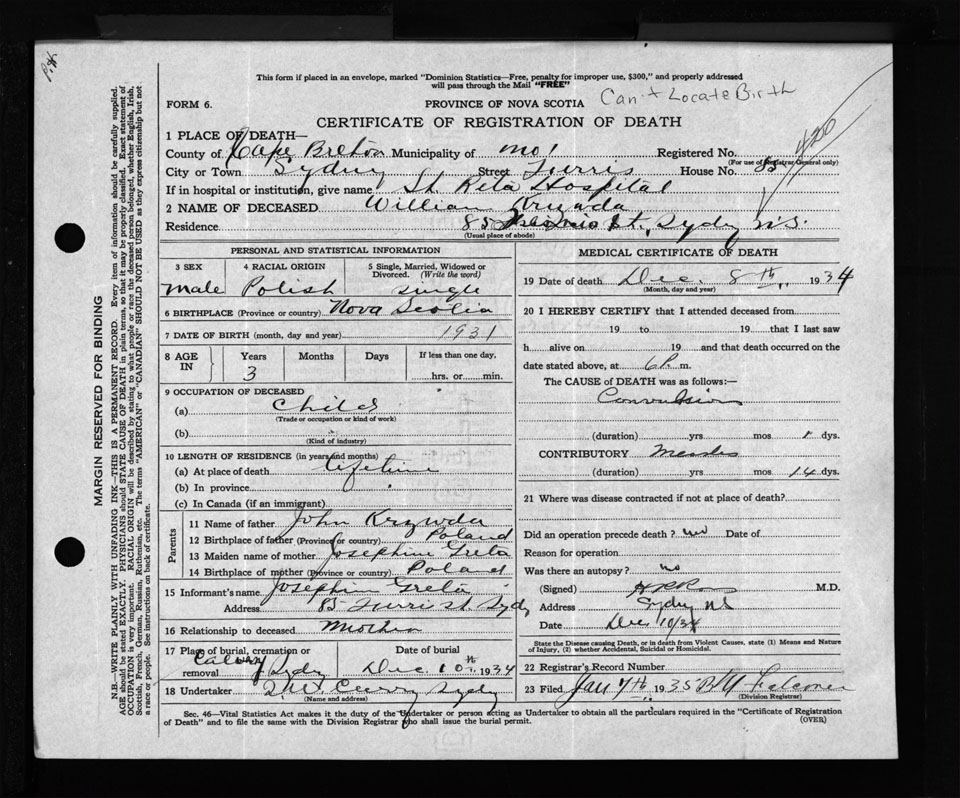 This form if placed in an envelope, marked "Dominion Statistics—Free, penalty for improper use, $300," and properly addressed
will pass through the Mail "FREE"
FORM 6.
PROVINCE OF NOVA SCOTIA
Can't Locate Birth
CERTIFICATE OF REGISTRATION OF DEATH
1 PLACE OF DEATH—
County of Cape Breton Municipality of Registered No.
(For use of Registrar General only)
City or Town Sydney Street Ferris House No. 85
If in hospital or institution, give name St. Rita Hospital
2 NAME OF DECEASED William
Residence 85 St., Sydny N.S.
(Usual place of abode)
PERSONAL AND STATISTICAL INFORMATION
3 SEX 4 RACIAL ORIGIN 5 Single, Married, Widowed or Divorced. (Write the word)
Male Polish Single
6 BIRTHPLACE (Province or country) Nova Scotia
7 DATE OF BIRTH (month, day and year) 1931
8 AGE IN Years Months Days If less than one day,
3 hrs. or min.
9 OCCUPATION OF DECEASED
(a) Child
(Trade or occupation or kind of work)
(b)
(Kind of industry)
10 LENGTH OF RESIDENCE (in years and months)
(a) At place of death lifetime
(b) In province
(c) In Canada (if an immigrant)
Parents
11 Name of father John Krzywda
12 Birthplace of father (Province or country) Poland
13 Maiden name of mother Josephine Grela
14 Birthplace of mother (Province or country) Poland
15 Informant's name Josephine Grela
Address 85 Ferris St. Sydy
16 Relationship to deceased Mother
17 Place of burial, cremation or removal Date of burial
Calvary Sydy Dec 10th 1934
18 Undertaker Curry Sydy
(Name and address)
MEDICAL CERTIFICATE OF DEATH
19 Date of death Dec. 8th, 1934
(Month, day and year)
20 I HEREBY CERTIFY that I attended deceased from
19 to 19 that I last saw
h alive on 19 and that death occurred on the
date stated above, at 6 P. m.
The CAUSE of DEATH was as follows:—
Convulsions
(duration) yrs mos 1 dys.
CONTRIBUTORY Measles
(duration) yrs mos 14 dys.
21 Where was disease contracted if not at place of death?
Did an operation precede death? no Date of
Reason for operation
Was there an autopsy? no
(Signed) M.D.
Address Sydney NS
Date Dec 10/34
State the Disease causing Death, or in death from Violent Causes, state (1) Means and Nature
of Injury, (2) whether Accidental, Suicidal or Homicidal.
22 Registrar's Record Number
23 Filed Jan 7th 1935
(Division Registrar)
Sec. 46—Vital Statistics Act makes it the duty of the Undertaker or person acting as Undertaker to obtain all the particulars required in the "Certificate of Registration
of Death" and to file the same with the Division Registrar who shall issue the burial permit.
(OVER)
MARGIN RESERVED FOR BINDING
N.B.—WRITE PLAINLY WITH UNFADING INK—THIS IS A PERMANENT RECORD. Every item of information should be carefully supplied.
AGE should be stated EXACTLY. PHYSICIANS should STATE CAUSE OF DEATH in plain terms, so that it may be properly classified. Exact statement of
OCCUPATION is very important. RACIAL ORIGIN will be described by stating to what people or race the deceased person belonged, whether English, Irish,
Scottish, French, German, Russian, Ruthenian, etc. The terms "AMERICAN" or "CANADIAN" SHOULD NOT BE USED as they express citizenship but not
a race or people. See instructions on back of certificate.